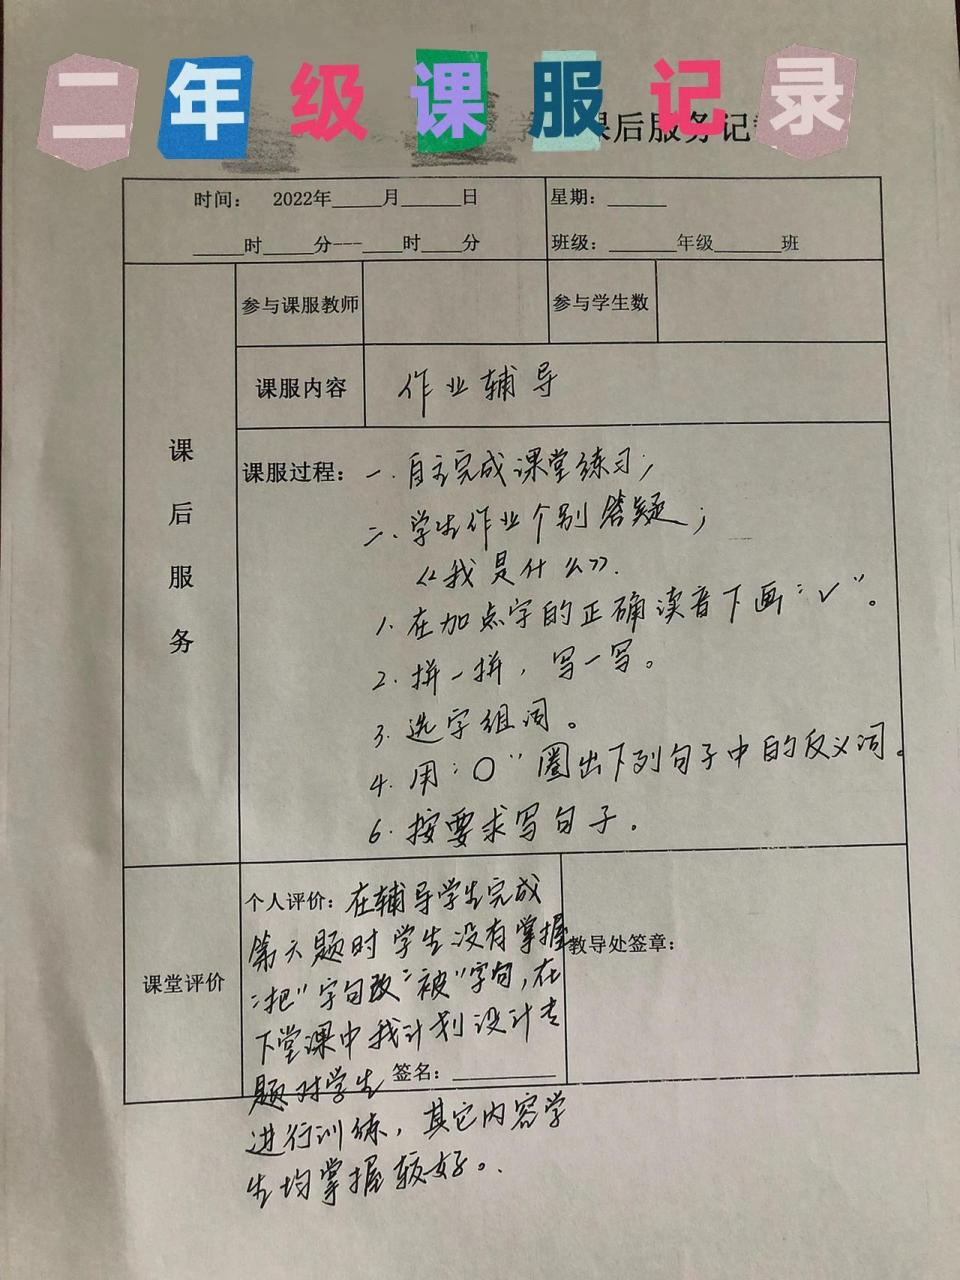 二年级课服记录
课后服务记
时间： 2022年_____月______日 星期：______
_____时_____分---____时____分 班级：_______年级_______班
参与课服教师 参与学生数
课服内容 作业辅导
课后服务
课服过程：一、自主完成课堂练习；
二、学生作业个别答疑；
《我是什么》.
1. 在加点字的正确读音下画“√”。
2. 拼一拼，写一写。
3. 选字组词。
4. 用“○”圈出下列句子中的反义词。
6. 按要求写句子。
课堂评价
个人评价：在辅导学生完成
第六题时学生没有掌握
“把”字句改“被”字句，在
下堂课中我计划设计专
题对学生 签名：__________
进行训练，其它内容学
生均掌握较好。
教导处签章：